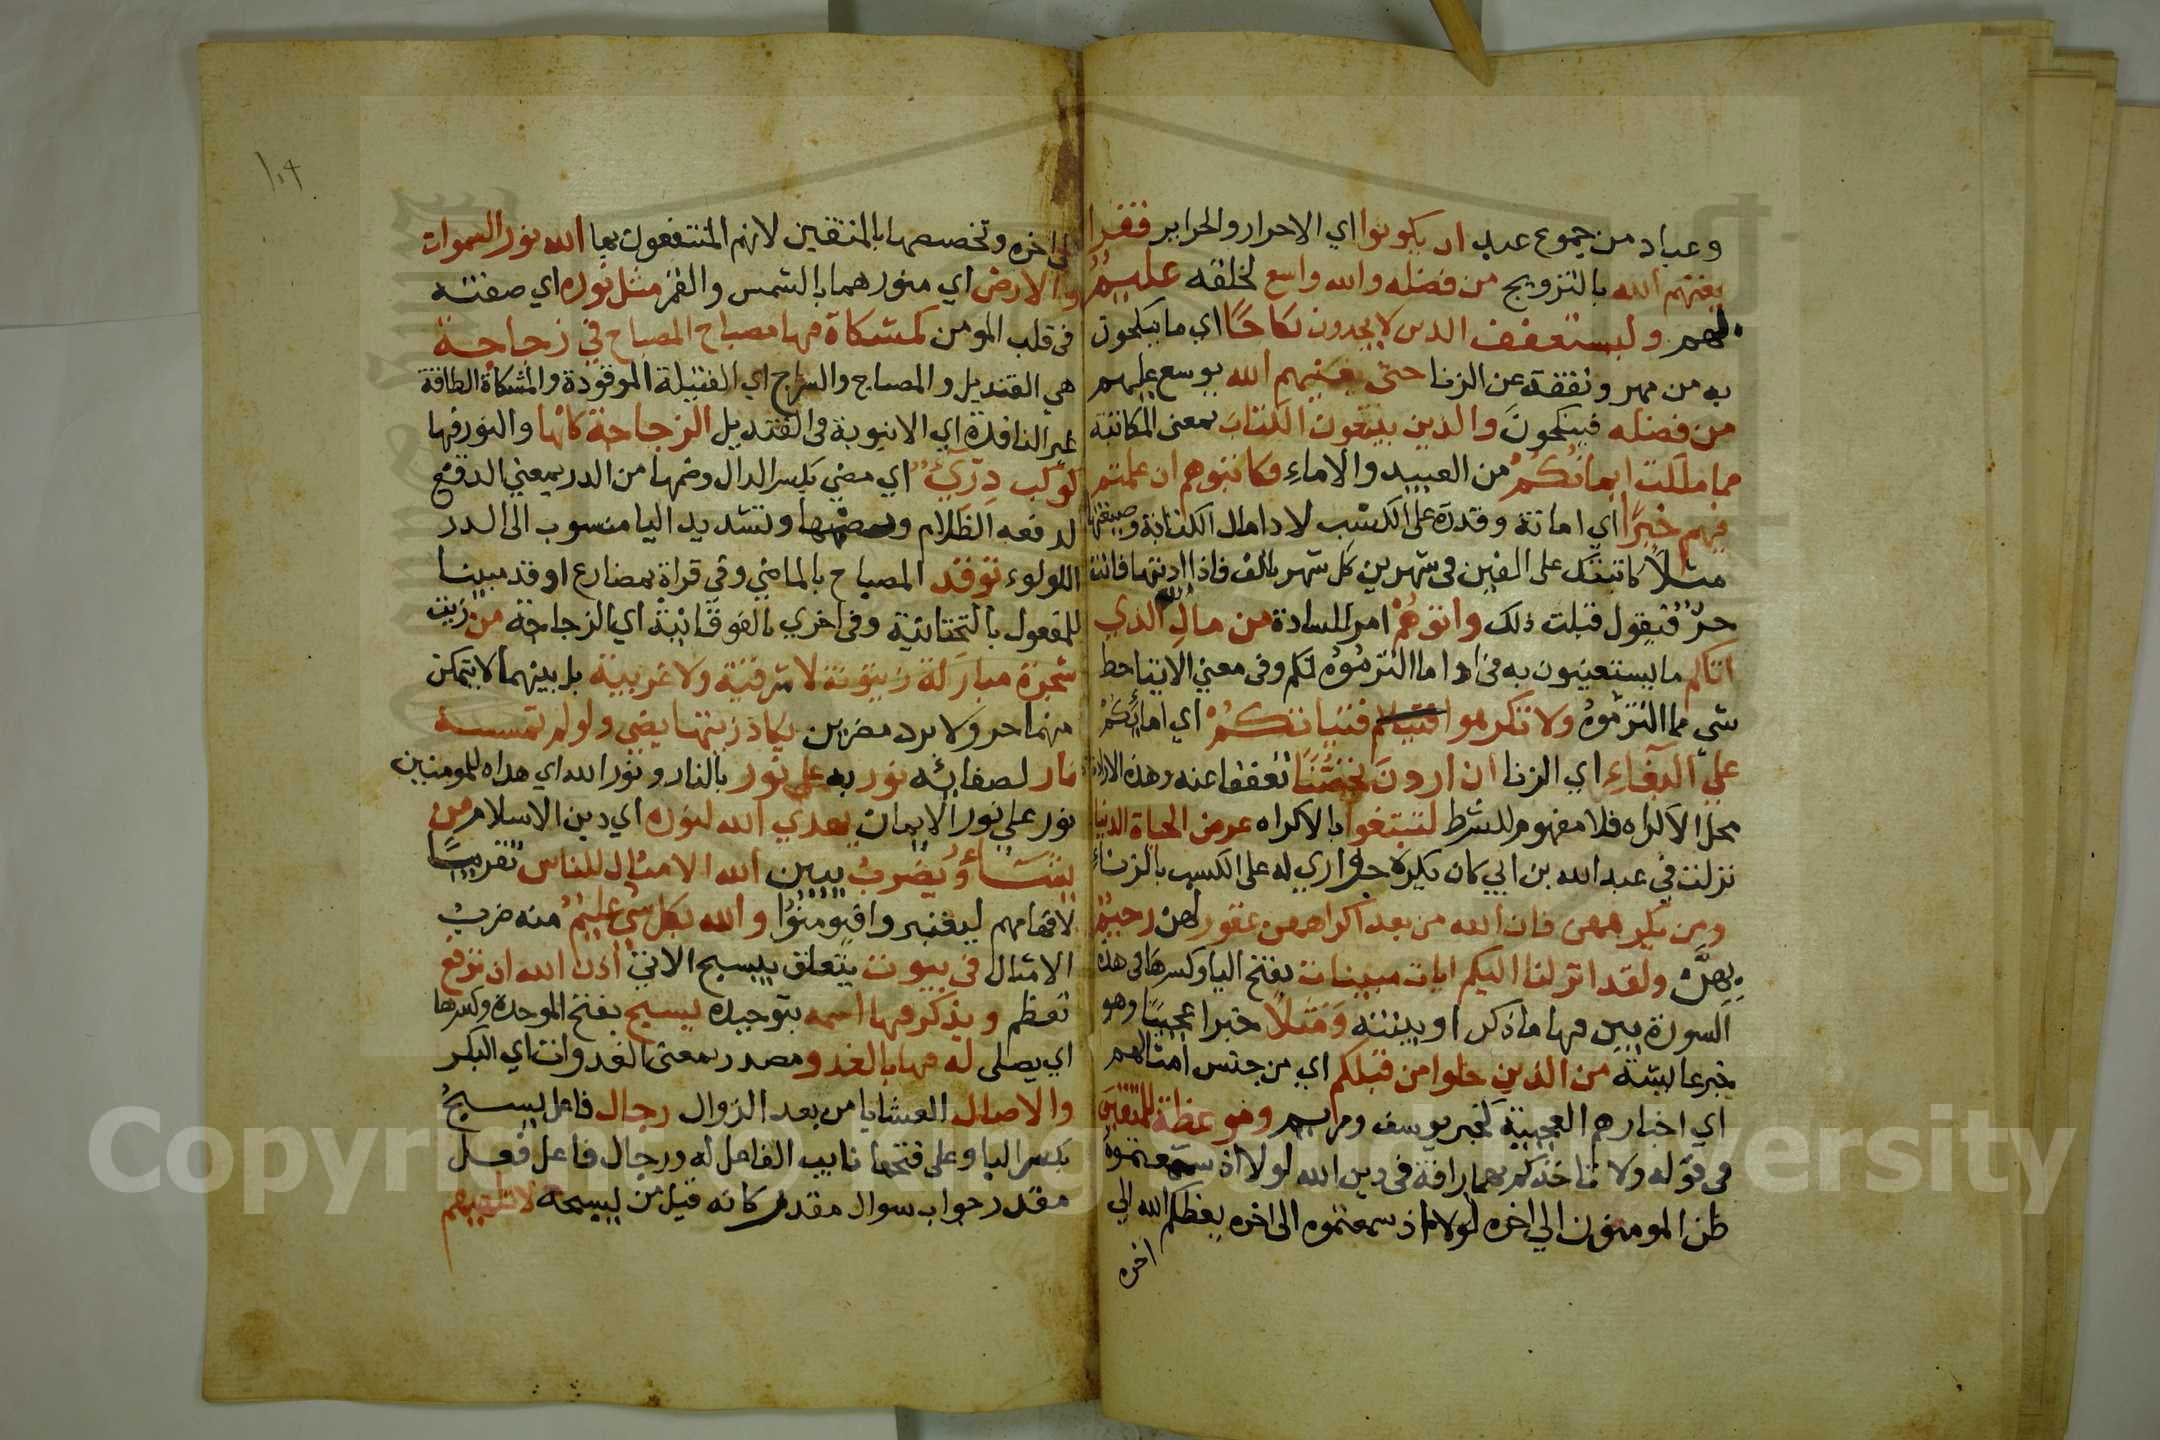 وعباد من جموع عبد ان يكونوا اي الاحرار والحراير فقرا
يغنهم الله بالتزويج من فضله والله واسع لخلقه عليمٌ
لهم وليستعفف الدين لا يجدون نكاحًا اي ما ينكحون
به من مهر ونفقة عن الزنا حتى يغنيهم الله يوسع عليهم
من فضله فينكحونَ والذين يبتغون الكتابَ بمعنى المكاتبة
مما ملكت ايمانكُمْ من العبيد والاماءِ فكاتبوهم ان علمتم
فيهم خيرًا اي امانة وقدرة على الكسب لاداء مال الكتابة وصيغتها
مثلاً كاتبتك على الفين في شهرين كل شهر بالف فاذا اديتها فانت
حرٌ فيقول قبلت ذلك واتوهُمْ امر للسادة من مالِ الله الذي
اتاكم ما يستعينون به في اداء ما التزموُهُ لكم وفي معني الايتا حط
شيٍ مما التزموهُ ولا تكرهوا فتياتكُمْ اي امائكُمْ
علي البِغَاءِ اي الزنا ان اردنَ تحصُّنًا تعففا عنه وهذه الارادة
محل الاكراه فلا مفهوم للشرط لتبتغوا بالاكراه عرض الحياة الدنيا
نزلت في عبد الله بن ابي كان يكره جواري له على الكسب بالزناءِ
ومن يكرههن فان الله من بعد اكراههن غفور لهن رحيمٌ
بهنَّ ولقد انزلنا اليكم ايات مبينات بفتح اليا وكسرها في هذه
السورة بين فيها ما ذكر او بينته وَمَثلاً خبرا عجيبًا وهو
خبر عايشة من الذين خلوا من قبلكم اي من جنس امثالهم
اي اخبارهم العجيبة كخبر يوسف ومريم وموعظة للمتقينَ
في قوله ولا تاخذكم بهما رافة في دين الله لولا اذ سمعتموهُ
ظن المومنون الي اخره لولا اذ سمعتموه الى اخره يعظكم الله الي
اخره
١٠٢
الي اخره وتخصيصها بالمتقين لانهم المنتفعون بها الله نور السموات
والارض اي منورهما بالشمس والقمر مثل نوره اي صفته
في قلب المومن كمشكاة فيها مصباح المصباح في زجاجة
هي القنديل والمصباح والسراج اي الفتيلة الموقودة والمشكاة الطاقة
غير النافذة اي الانبوبة في القنديل الزجاجة كانها والنور فيها
كوكب دِرّيٌ اي مضي بكسر الدال وضمها من الدر بمعني الدفع
لدفعه الظلام وبضمها وتشديد اليا منسوب الى الدر
اللولوء توقد المصباح بالماضي وفي قراة بمضارع اوقد مبينا
للمفعول بالتحتانية وفي اخري بالفوقانية اي الزجاجة من زيت
شجرة مباركة زيتونة لا شرقية ولا غربية بل بينهما لا يتمكن
منهما حر ولا برد مضرين يكاد زيتها يضي ولو لم تمسسه
نار لصفائه نور به على نور بالنار ونور الله اي هداه للمومنين
نور علي نور الايمان يهدي الله لنوره اي دين الاسلام من
يشَاءُ ويَضربُ يبين الله الامثال للناس تقريبًا
لافهامهم ليعتبروا فيومنُوا والله بكل شي عليمٌ منه ضربُ
الامثال في بيوت يتعلق بيسبح الاتي اذن الله ان ترفع
تعظم ويذكر فيها اسمه بتوحيده يسبح بفتح الموحدة وكسرها
اي يصلى له فيها بالغدو مصدر بمعنى الغدوات اي البكر
والاصال العشايا من بعد الزوال رجال فاعل يسبحُ
بكسر البا وعلى فتحها نايب الفاعل له ورجال فاعل فعل
مقدر جواب سوال مقدر كانه قيل من يسبحه لا تلهيهم
Copyright © King Saud University